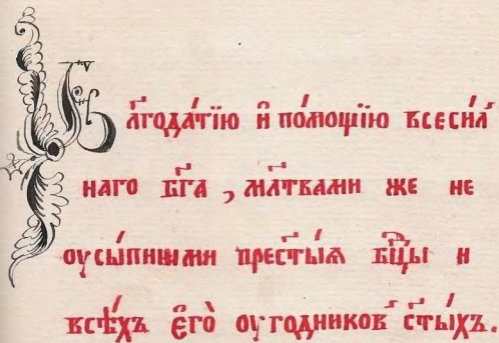 Бл҃года́тїю и҆ по́мощїю всеси́л
наго бг҃а , мл҃твами же не
ᲂу҆сы́пными прест҃ы́ѧ бц҃ы и
всѣ́хъ є҆гѡ̀ ᲂу҆годников̾ ст҃ы́хъ.